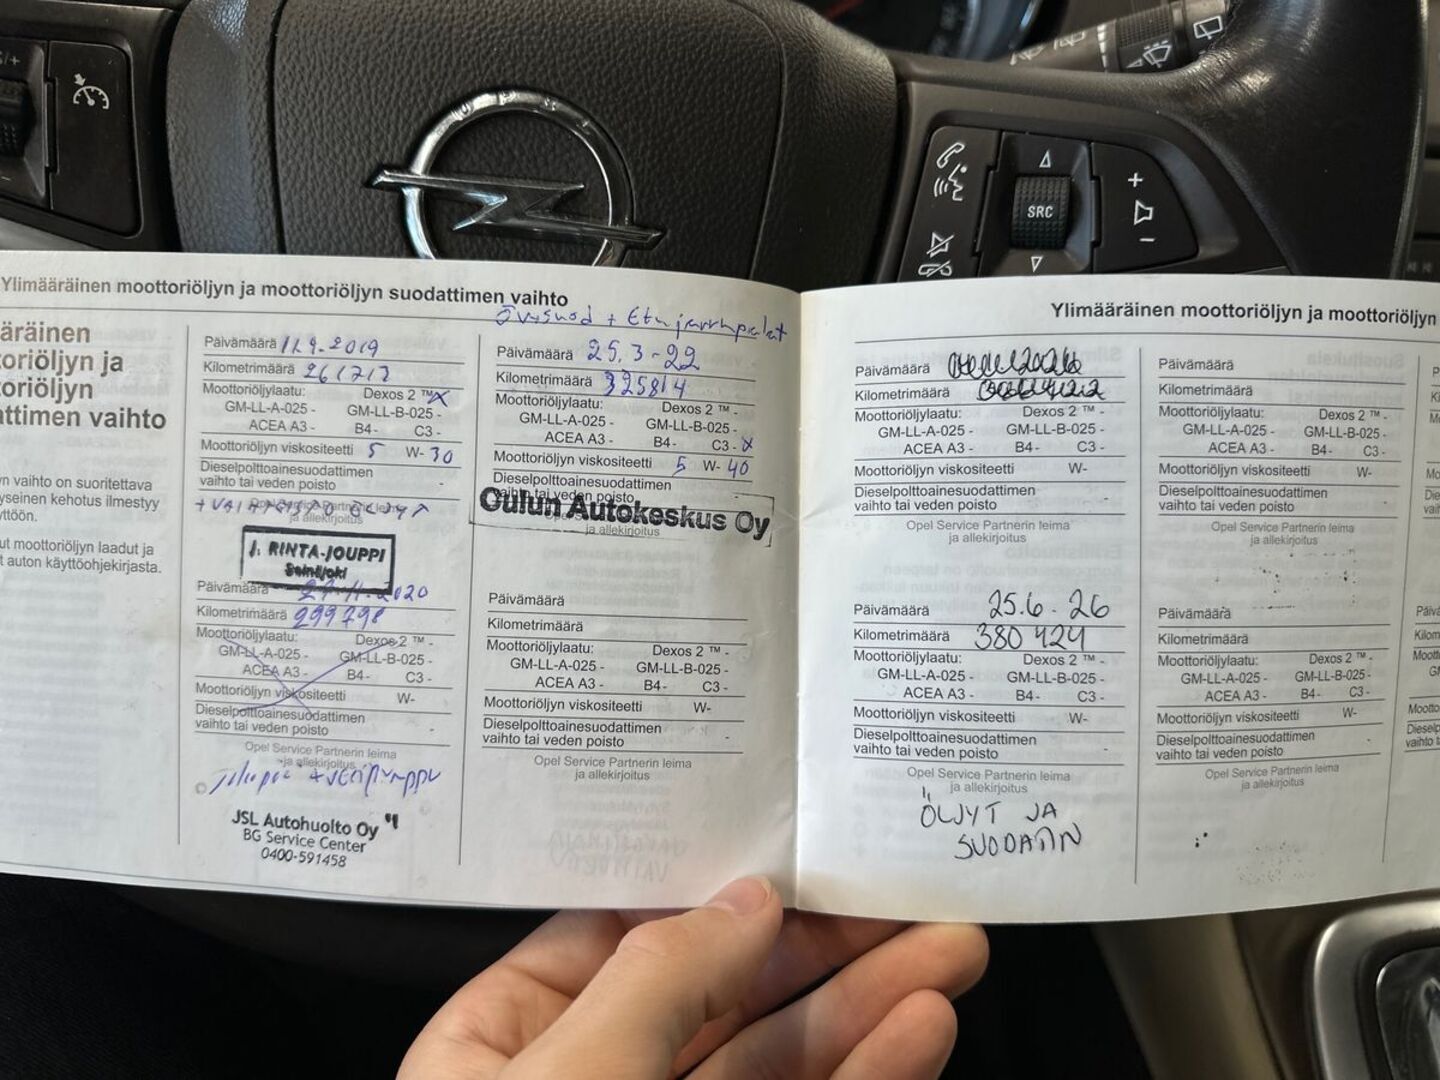 OPEL
SRC
+
-
Ylimääräinen moottoriöljyn ja moottoriöljyn suodattimen vaihto
ääräinen
toriöljyn ja
toriöljyn
attimen vaihto
n vaihto on suoritettava
yseinen kehotus ilmestyy
yttöön.
ut moottoriöljyn laadut ja
t auton käyttöohjekirjasta.
Päivämäärä 11.9.2019
Kilometrimäärä 261717
Moottoriöljylaatu: Dexos 2 ™ x
GM-LL-A-025 - GM-LL-B-025 -
ACEA A3 - B4 - C3 -
Moottoriöljyn viskositeetti 5 W- 30
Dieselpolttoainesuodattimen
vaihto tai veden poisto -
Opel Service Partnerin leima
ja allekirjoitus
J. RINTA-JOUPPI
Seinäjoki
Päivämäärä 27.11.2020
Kilometrimäärä 299798
Moottoriöljylaatu: Dexos 2 ™ -
GM-LL-A-025 - GM-LL-B-025 -
ACEA A3 - B4 - C3 -
Moottoriöljyn viskositeetti W-
Dieselpolttoainesuodattimen
vaihto tai veden poisto -
Opel Service Partnerin leima
ja allekirjoitus
JSL Autohuolto Oy
BG Service Center
0400-591458
+ Etujarrupalat
Päivämäärä 25.3-22
Kilometrimäärä 325814
Moottoriöljylaatu: Dexos 2 ™ -
GM-LL-A-025 - GM-LL-B-025 -
ACEA A3 - B4 - C3 - x
Moottoriöljyn viskositeetti 5 W- 40
Dieselpolttoainesuodattimen
vaihto tai veden poisto -
Oulun Autokeskus Oy
ja allekirjoitus
Päivämäärä
Kilometrimäärä
Moottoriöljylaatu: Dexos 2 ™ -
GM-LL-A-025 - GM-LL-B-025 -
ACEA A3 - B4 - C3 -
Moottoriöljyn viskositeetti W-
Dieselpolttoainesuodattimen
vaihto tai veden poisto -
Opel Service Partnerin leima
ja allekirjoitus
Ylimääräinen moottoriöljyn ja moottoriöljyn
Päivämäärä
Kilometrimäärä
Moottoriöljylaatu: Dexos 2 ™ -
GM-LL-A-025 - GM-LL-B-025 -
ACEA A3 - B4 - C3 -
Moottoriöljyn viskositeetti W-
Dieselpolttoainesuodattimen
vaihto tai veden poisto -
Opel Service Partnerin leima
ja allekirjoitus
Päivämäärä 25.6.26
Kilometrimäärä 380424
Moottoriöljylaatu: Dexos 2 ™ -
GM-LL-A-025 - GM-LL-B-025 -
ACEA A3 - B4 - C3 -
Moottoriöljyn viskositeetti W-
Dieselpolttoainesuodattimen
vaihto tai veden poisto -
Opel Service Partnerin leima
ja allekirjoitus
ÖLJYT JA
SUODATIN
Päivämäärä
Kilometrimäärä
Moottoriöljylaatu: Dexos 2 ™ -
GM-LL-A-025 - GM-LL-B-025 -
ACEA A3 - B4 - C3 -
Moottoriöljyn viskositeetti W-
Dieselpolttoainesuodattimen
vaihto tai veden poisto -
Opel Service Partnerin leima
ja allekirjoitus
Päivämäärä
Kilometrimäärä
Moottoriöljylaatu: Dexos 2 ™ -
GM-LL-A-025 - GM-LL-B-025 -
ACEA A3 - B4 - C3 -
Moottoriöljyn viskositeetti W-
Dieselpolttoainesuodattimen
vaihto tai veden poisto -
Opel Service Partnerin leima
ja allekirjoitus